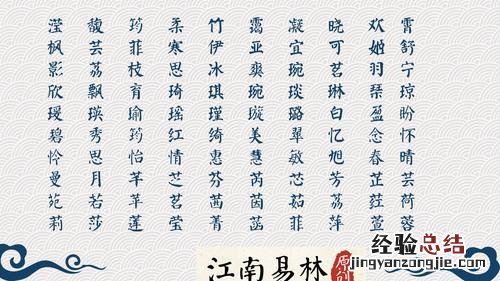 滢 馥 筠 柔 竹 霭 凝 晓 欢 霄
枫 芸 菲 寒 伊 亚 宜 可 姬 舒
影 荔 枝 思 冰 爽 琬 茗 羽 宁
欣 飘 育 琦 琪 琬 琰 琳 琴 琼
瑗 瑛 瑜 瑶 瑾 璇 璐 白 盈 盼
碧 秀 筠 红 绮 美 翠 忆 念 怀
怜 思 怡 情 惠 慧 敏 旭 春 晴
曼 月 芊 芝 芬 芮 芯 芳 芷 芸
苑 若 苹 茗 茜 茵 茹 荔 荭 荷
莉 莎 莲 莹 菁 菡 菲 萍 萱 蓉
江南易林 原创
经验总结
jingyanzongjie.com